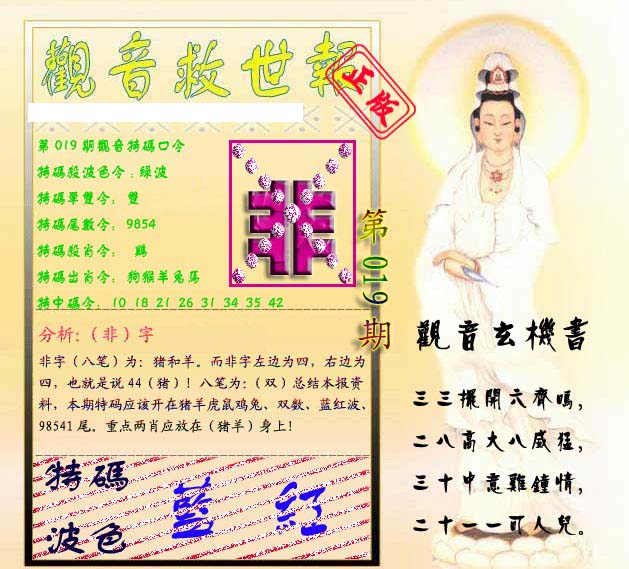 觀音救世報
正版
第019期觀音特碼口令
特碼殺波色令:綠波
特碼單雙令: 雙
特碼尾數令: 9854
特碼殺肖令: 鷄
特碼出肖令: 狗猴羊兔馬
特中碼令: 10 18 21 26 31 34 35 42
非
第019期
分析:(非)字
非字(八笔)为:猪和羊。而非字左边为四,右边为
四,也就是说44(猪)!八笔为:(双)总结本报资
料,本期特码应该开在猪羊虎鼠鸡兔、双数、蓝红波、
98541尾。重点两肖应放在(猪羊)身上!
特碼
波色
藍 紅
觀音玄機書
三三擺開六齊鳴,
二八高大八威猛,
三十中意雞鐘情,
二十一一可人兒。